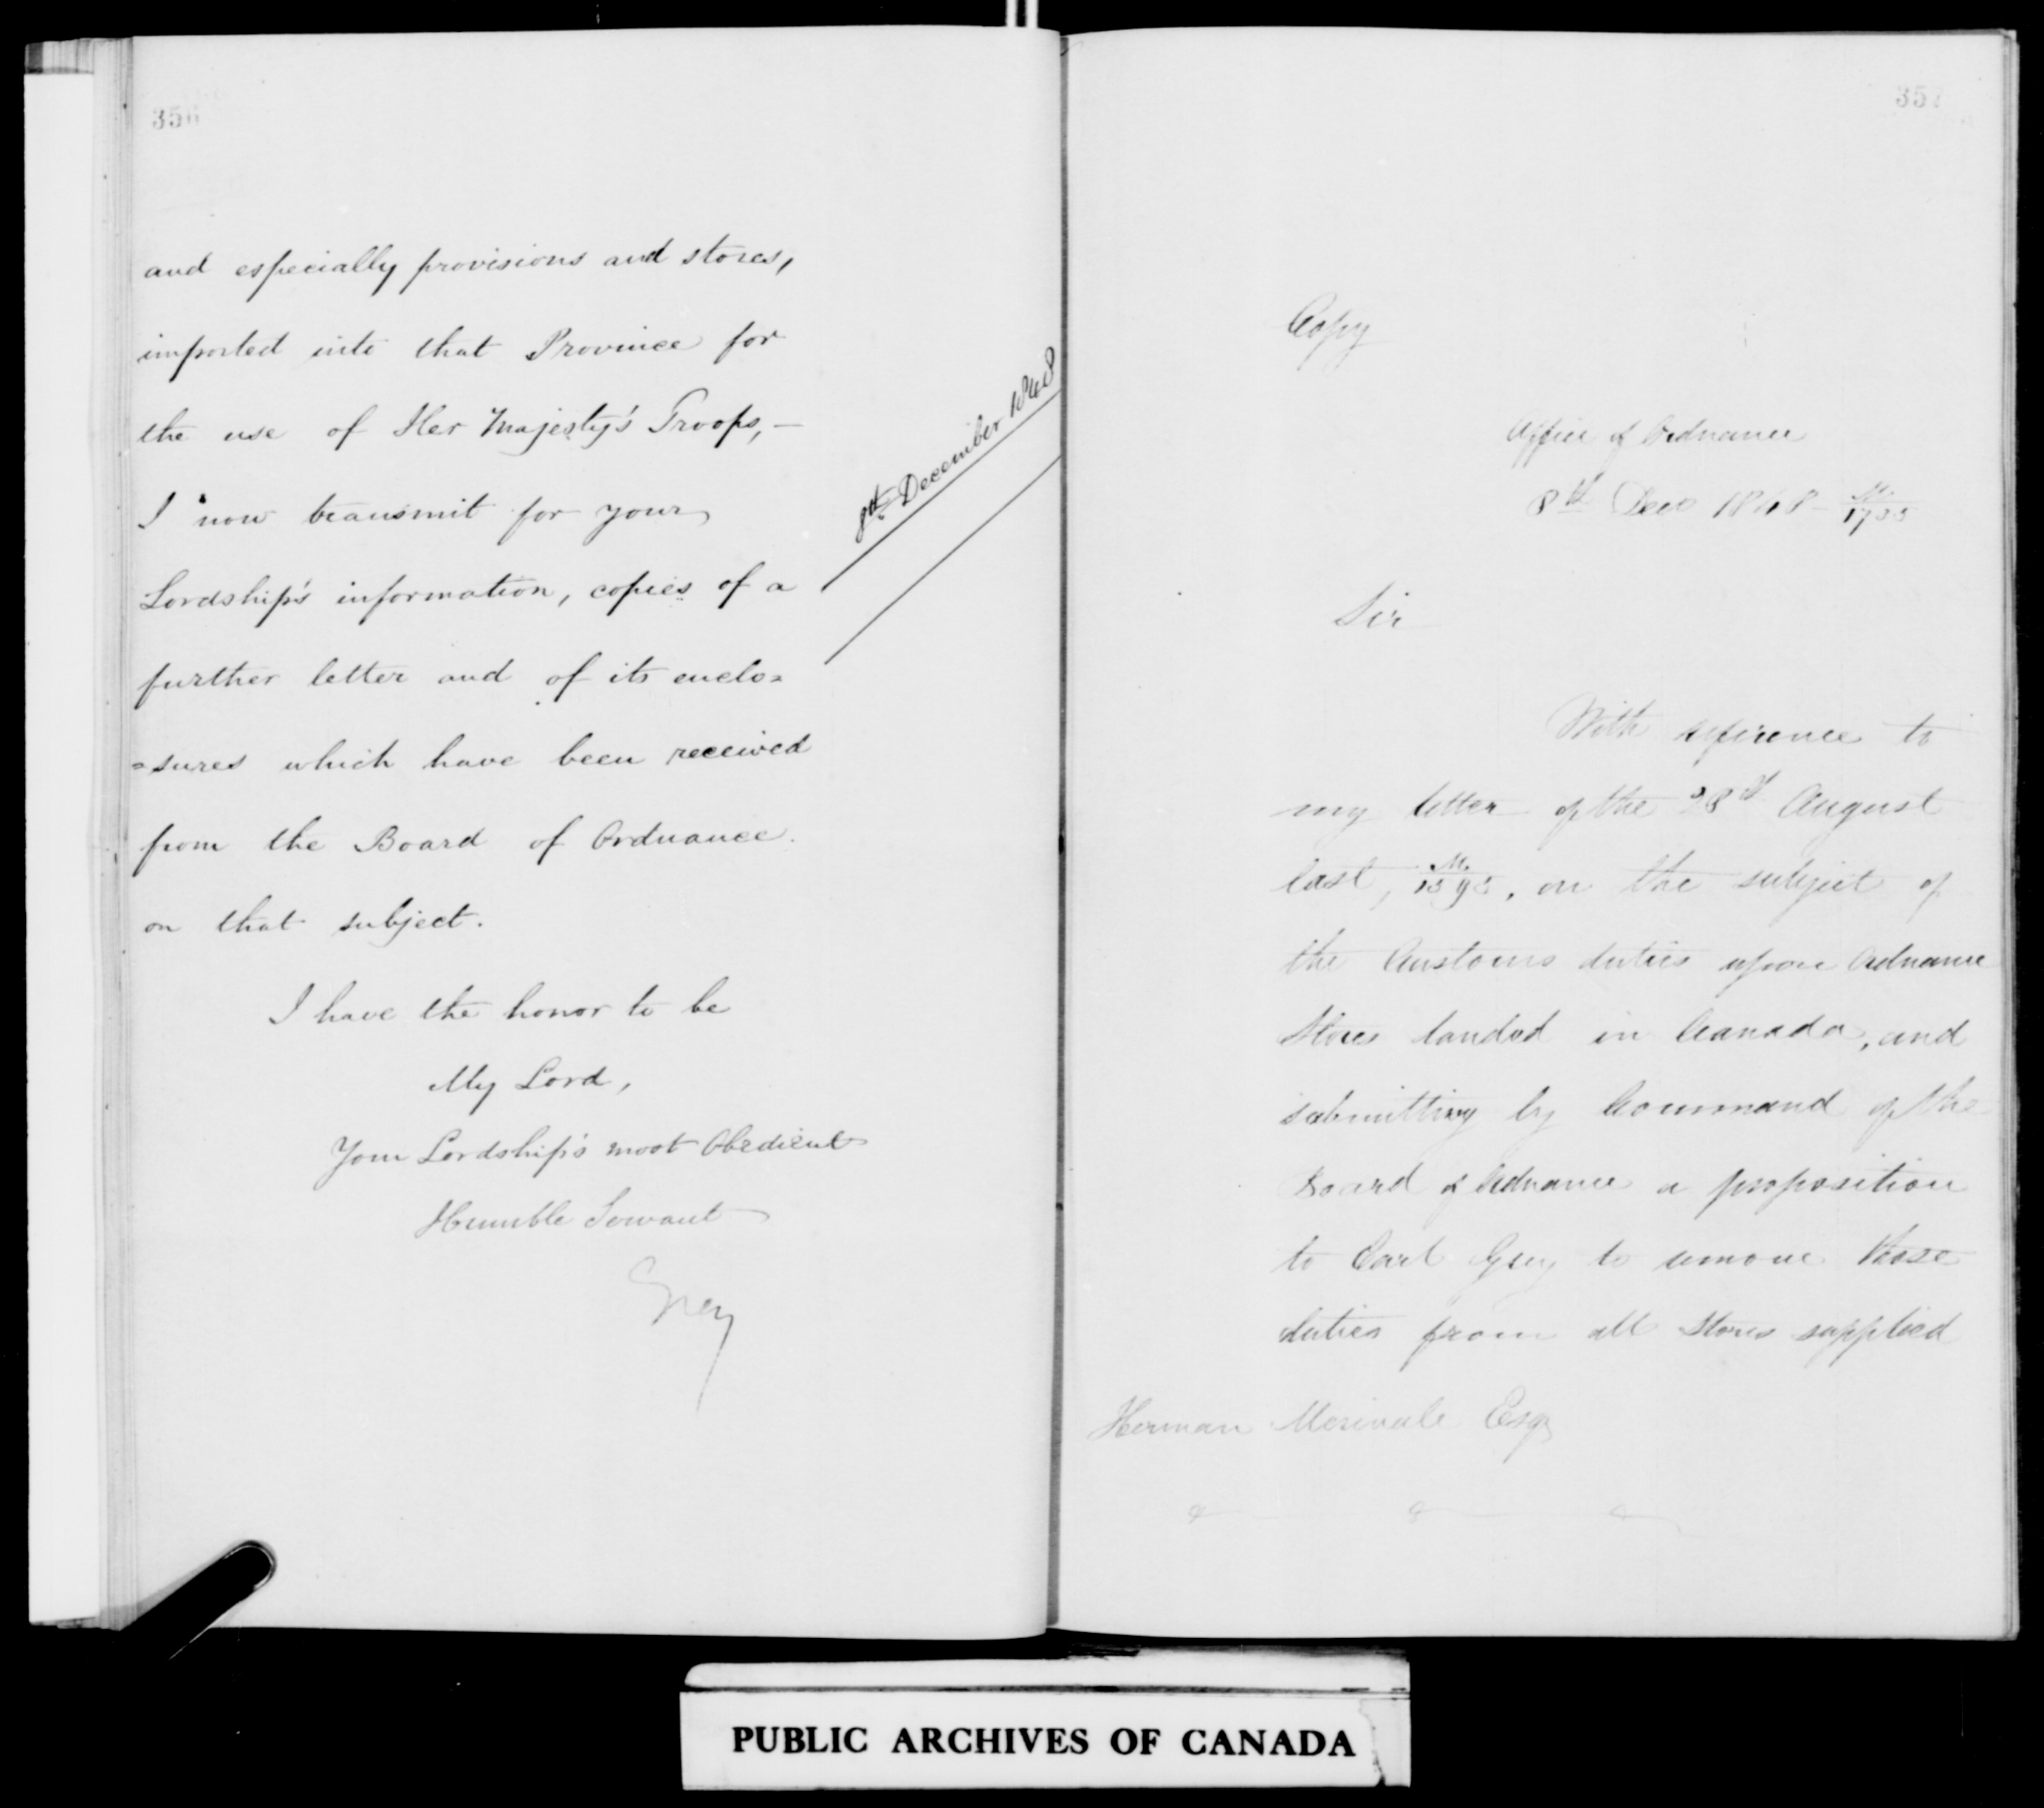 356
and especially provisions and stores,
imported into that Province for
the use of Her Majesty's Troops, —
I now transmit for your
Lordship's information, copies of a
further letter and of its enclo=
=sures which have been received
from the Board of Ordnance.
on that subject.
8th December 1848
I have the honor to be
My Lord,
Your Lordship's most Obedient
Humble Servant
Grey
357
Copy
Office of Ordnance
8th Dec 1848 - M/1755
Sir
With reference to
my letter of the 28th August
last, M/1395, on the subject of
the Customs duties upon Ordnance
Stores landed in Canada, and
submitting by Command of the
Board of Ordnance a proposition
to Earl Grey to remove those
duties from all Stores supplied
Herman Merivale Esqr
PUBLIC ARCHIVES OF CANADA